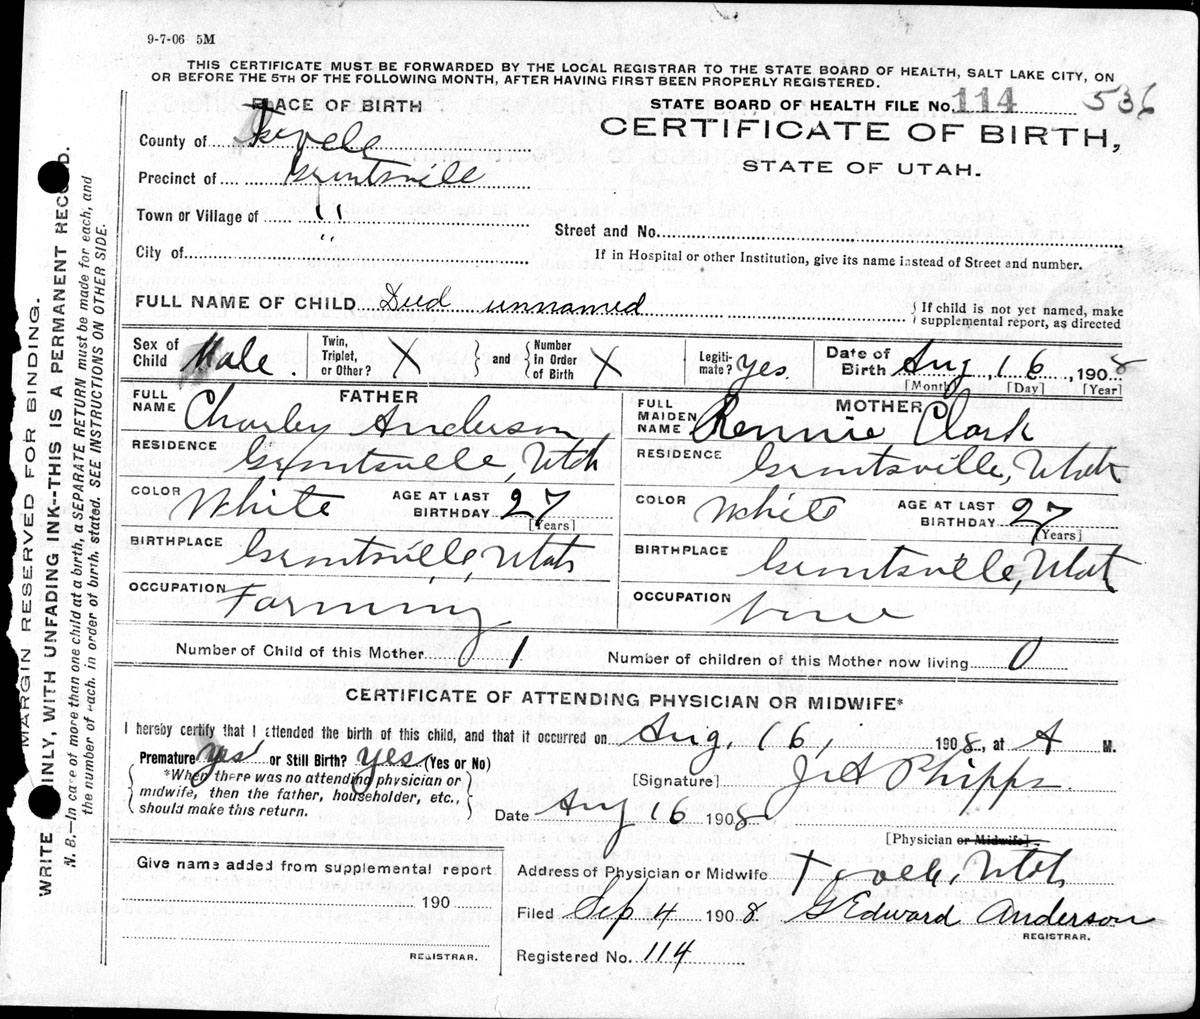 9-7-06 5M
THIS CERTIFICATE MUST BE FORWARDED BY THE LOCAL REGISTRAR TO THE STATE BOARD OF HEALTH, SALT LAKE CITY, ON
OR BEFORE THE 5TH OF THE FOLLOWING MONTH, AFTER HAVING FIRST BEEN PROPERLY REGISTERED.
PLACE OF BIRTH
STATE BOARD OF HEALTH FILE No. 114 536
CERTIFICATE OF BIRTH,
STATE OF UTAH.
County of Tooele
Precinct of Grantsville
Town or Village of "
Street and No.
City of "
If in Hospital or other Institution, give its name instead of Street and number.
FULL NAME OF CHILD Died unnamed
{ If child is not yet named, make
supplemental report, as directed
Sex of Child Male. Twin, Triplet, or Other? X } and { Number in Order of Birth X Legitimate? Yes. Date of Birth Aug 16, 1908
[Month] [Day] [Year]
FATHER
FULL NAME Charley Anderson
RESIDENCE Grantsville, Utah
COLOR White AGE AT LAST BIRTHDAY 27
[Years]
BIRTHPLACE Grantsville, Utah
OCCUPATION Farming
MOTHER
FULL MAIDEN NAME Rennie Clark
RESIDENCE Grantsville, Utah
COLOR White AGE AT LAST BIRTHDAY 27
[Years]
BIRTHPLACE Grantsville, Utah
OCCUPATION
Number of Child of this Mother 1 Number of children of this Mother now living 0
CERTIFICATE OF ATTENDING PHYSICIAN OR MIDWIFE*
I hereby certify that I attended the birth of this child, and that it occurred on Aug. 16, 1908, at A M.
Premature yes or Still Birth? yes. (Yes or No)
*When there was no attending physician or
midwife, then the father, householder, etc.,
should make this return.
[Signature] J A Phipps.
Date Aug 16 1908
[Physician or Midwife]
Give name added from supplemental report
190
REGISTRAR.
Address of Physician or Midwife Tooele, Utah
Filed Sep 4 1908 G Edward Anderson
REGISTRAR.
Registered No. 114
MARGIN RESERVED FOR BINDING.
WRITE INLY, WITH UNFADING INK--THIS IS A PERMANENT REC D.
N. B.—In case of more than one child at a birth, a SEPARATE RETURN must be made for each, and
the number of each, in order of birth, stated. SEE INSTRUCTIONS ON OTHER SIDE.